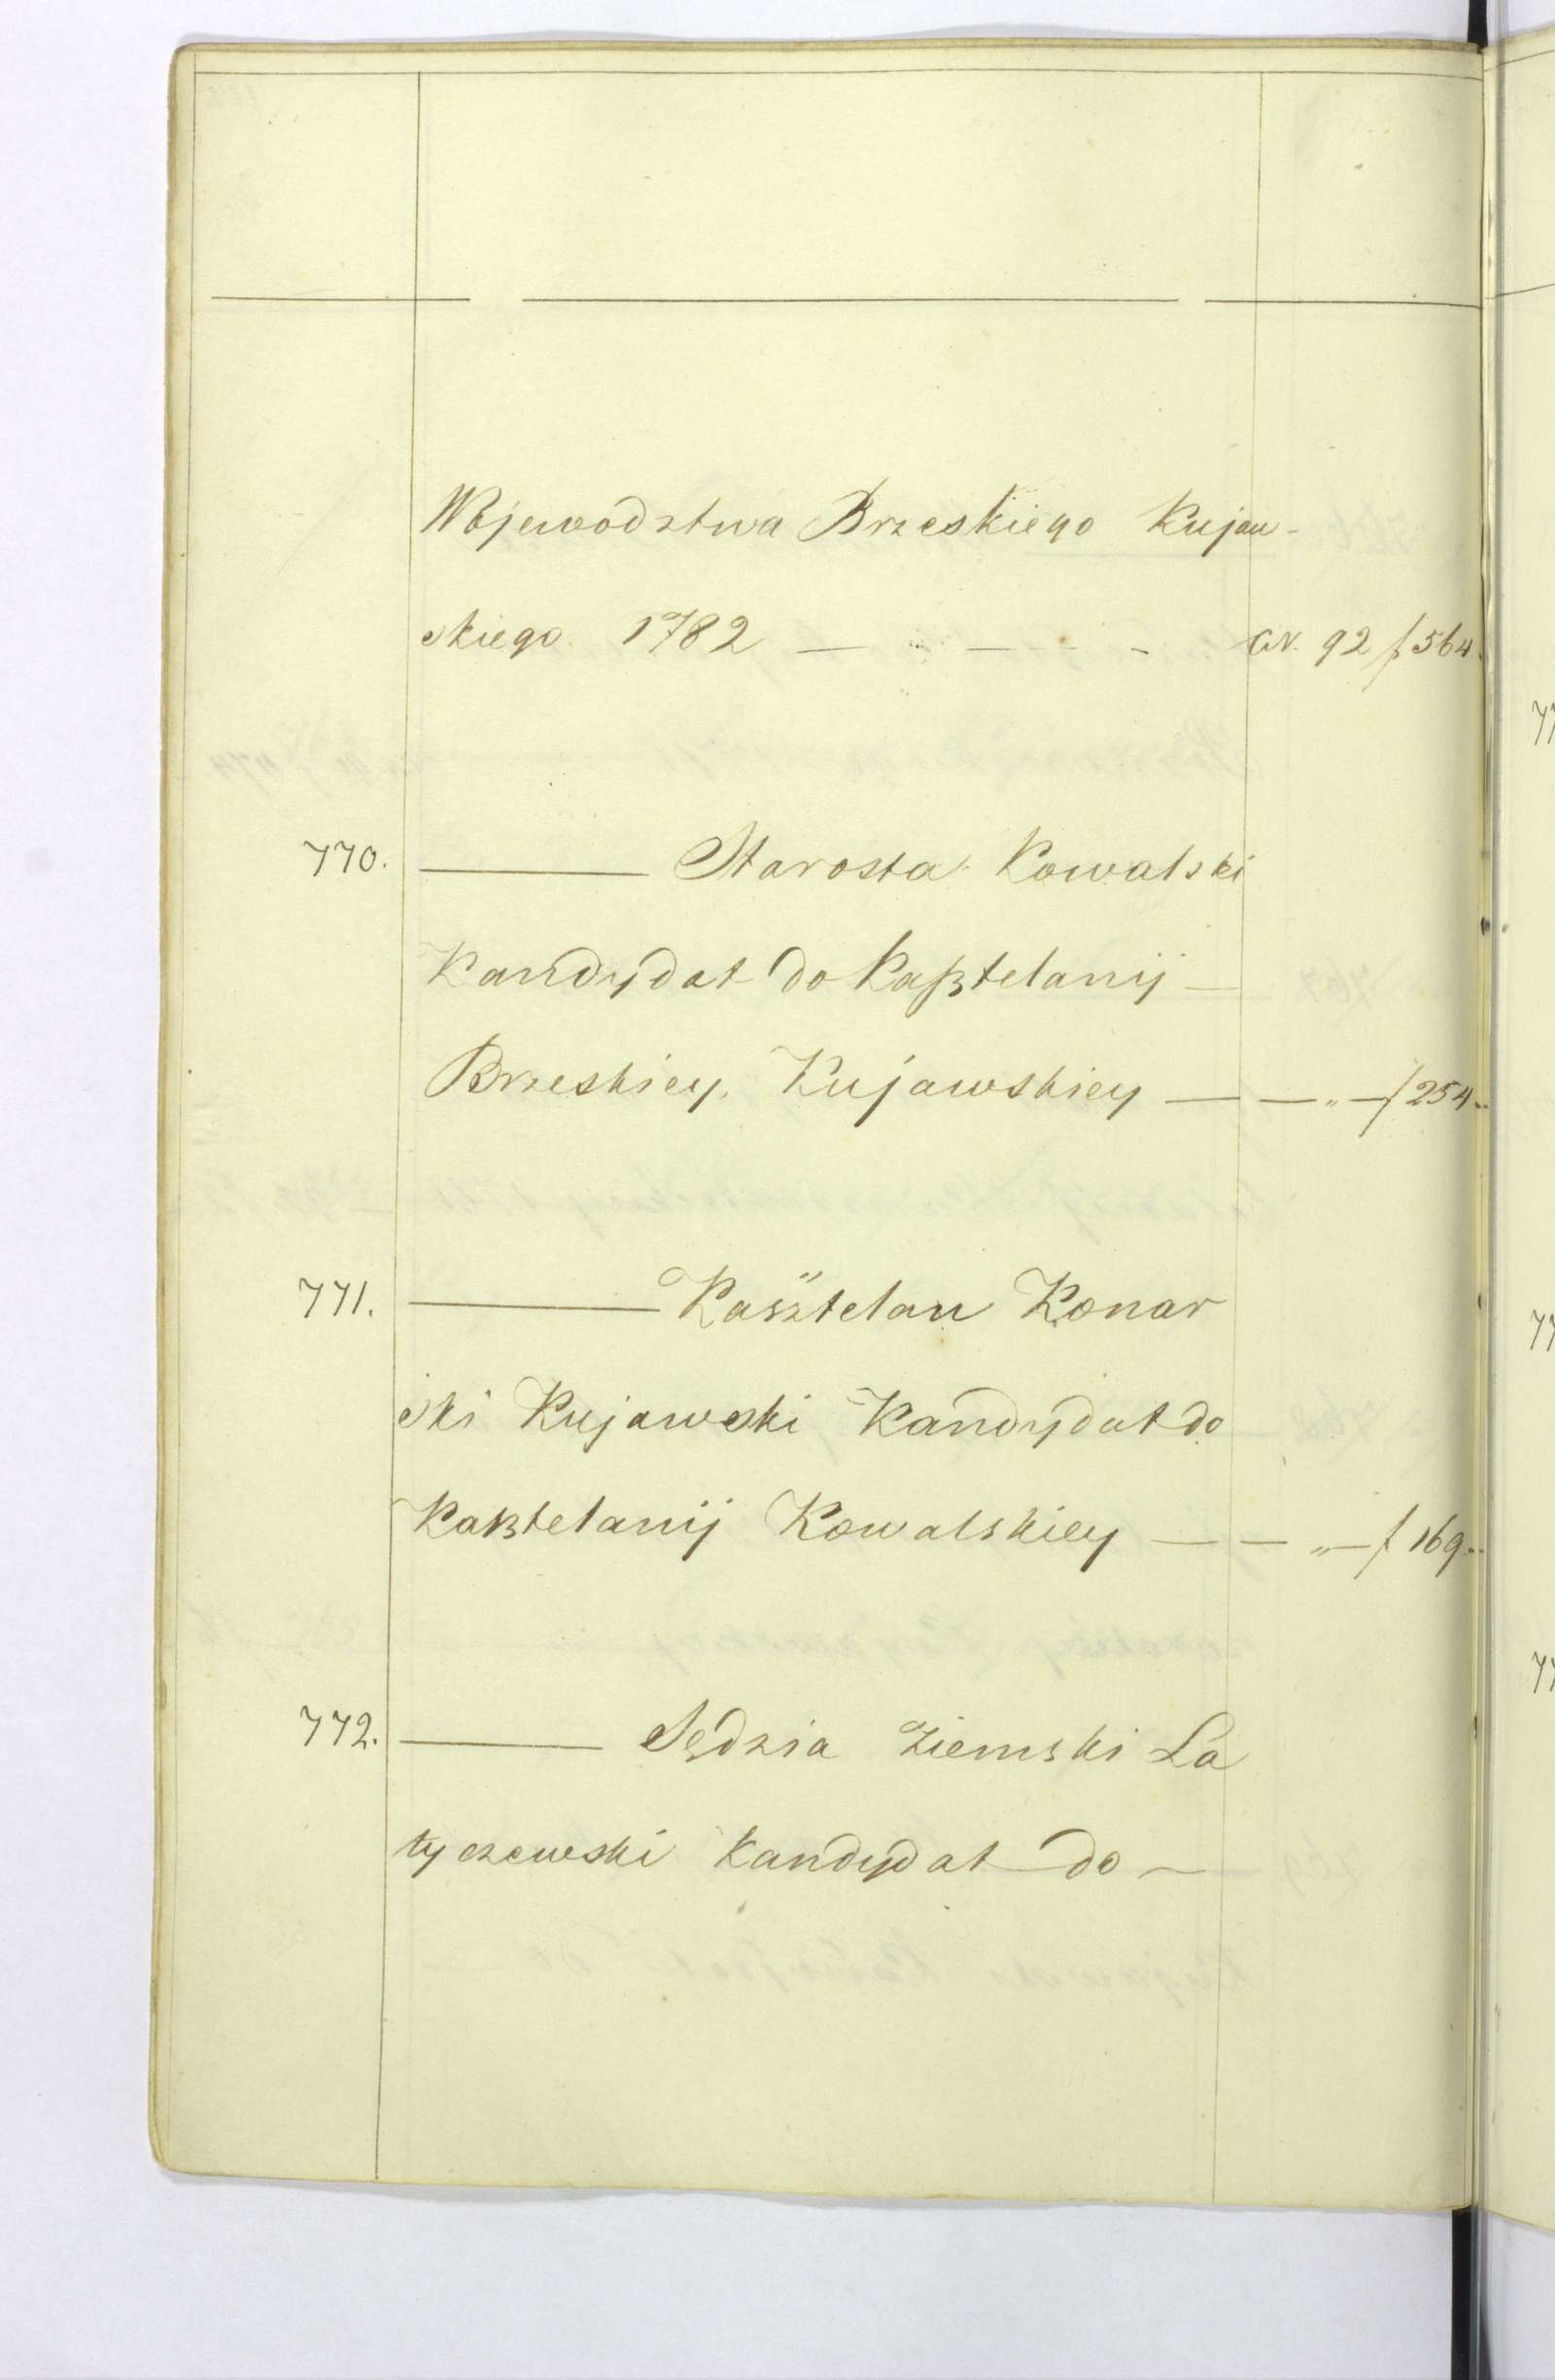 Wojewodztwa Brzeskiego Kujaw-
skiego 1782 — — — - - N. 92 f 564.
770. ——— Starosta Kowalski
Kandydat do Kaßtelanij —
Brzeskiey Kujawskiey — — „ — f 254 -
771. ——— Kasztelan Konar
ski Kujawski Kandydat do
Kaßtelanij Kowalskiey — — „ — f 169 -
772. ——— Sędzia Ziemski La
tyczewski Kandydat do —